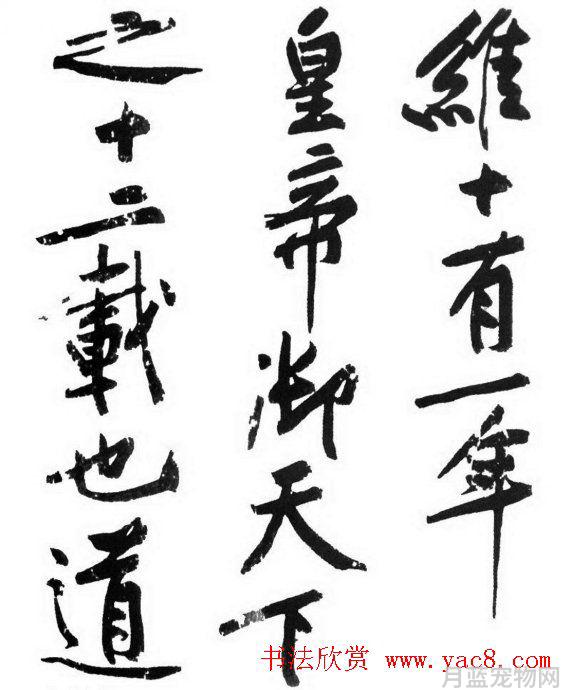 維十有一年
皇帝御天下
之十二載也道
书法欣赏 www.yac8.com
月蓝宠物网